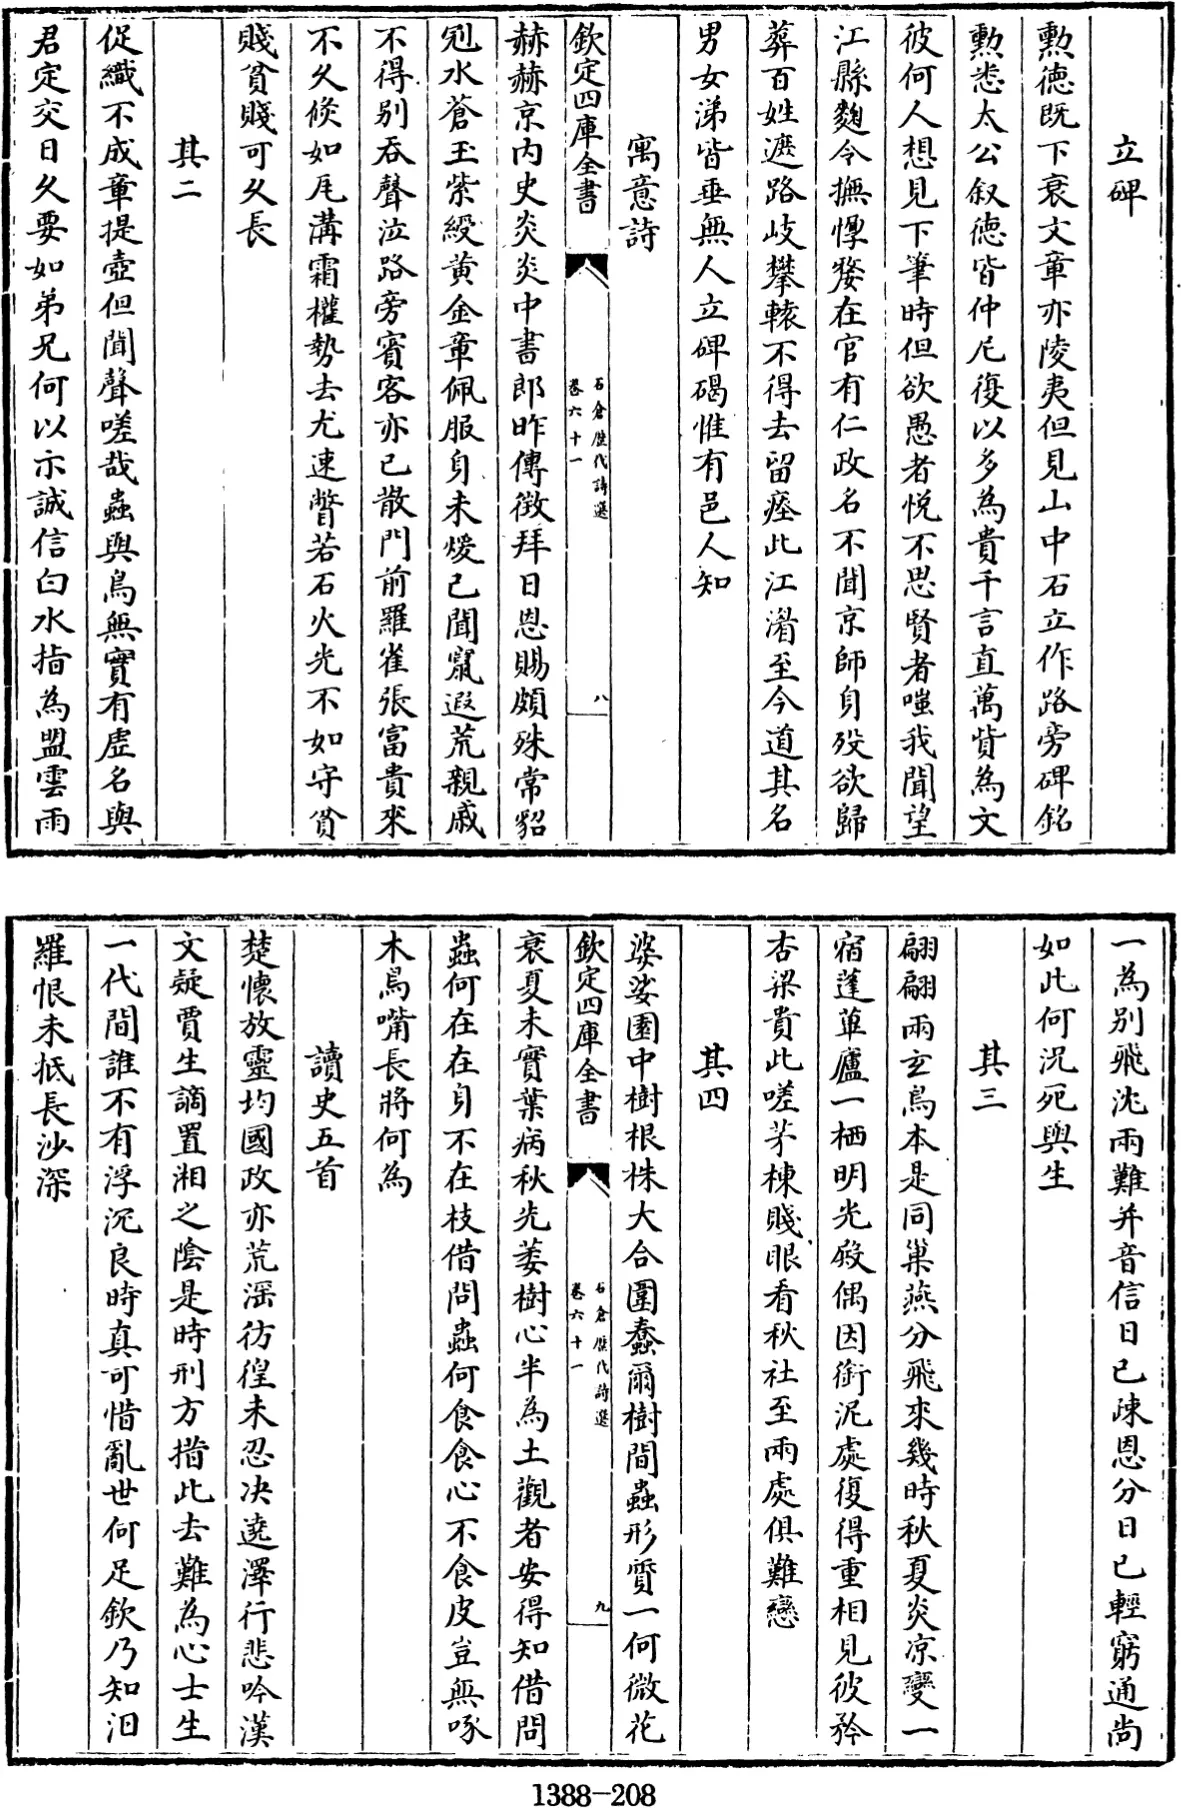 立碑
勲德既下衰文章亦陵夷但見山中石立作路旁碑銘
勲悉太公叙德皆仲尼復以多為貴千言直萬貲為文
彼何人想見下筆時但欲愚者悦不思賢者嗤我聞望
江縣麴令撫惸嫠在官有仁政名不聞京師身歿欲歸
葬百姓遮路岐攀轅不得去留瘞此江湄至今道其名
男女涕皆垂無人立碑碣惟有邑人知
寓意詩
欽定四庫全書
石倉歴代詩選
卷六十一
八
赫赫京内史炎炎中書郎昨傳徴拜日恩賜頗殊常貂
冠水蒼玉紫綬黄金章佩服身未煖已聞竄遐荒親戚
不得别吞聲泣路旁賓客亦已散門前羅雀張富貴來
不久倐如瓦溝霜權勢去尤速瞥若石火光不如守貧
賤貧賤可乆長
其二
促織不成章提壺但聞聲嗟哉蟲與鳥無實有虚名與
君定交日久要如弟兄何以示誠信白水指為盟雲雨
一為别飛沈兩難并音信日已疎恩分日已輕窮通尚
如此何况死與生
其三
翩翩兩玄鳥本是同巢燕分飛來幾時秋夏炎凉變一
宿蓬蓽廬一栖明光殿偶因銜泥處復得重相見彼矜
杏梁貴此嗟茅棟賤眼看秋社至兩處俱難戀
其四
婆娑園中樹根株大合圍蠢爾樹間蟲形質一何微花
欽定四庫全書
石倉歴代詩選
卷六十一
九
衰夏未實葉病秋先萎樹心半為土觀者安得知借問
蟲何在在身不在枝借問蟲何食食心不食皮豈無啄
木鳥嘴長將何為
讀史五首
楚懷放靈均國政亦荒淫彷徨未忍决遶澤行悲吟漢
文疑賈生謫置湘之陰是時刑方措此去難為心士生
一代間誰不有浮沉良時真可惜亂世何足欽乃知汨
羅恨未抵長沙深
1388—208